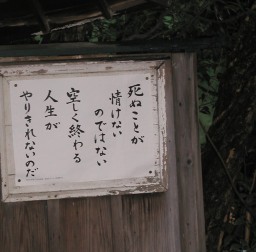 死ぬことが
情けない
のではない
空しく終わる
人生が
やりきれないのだ